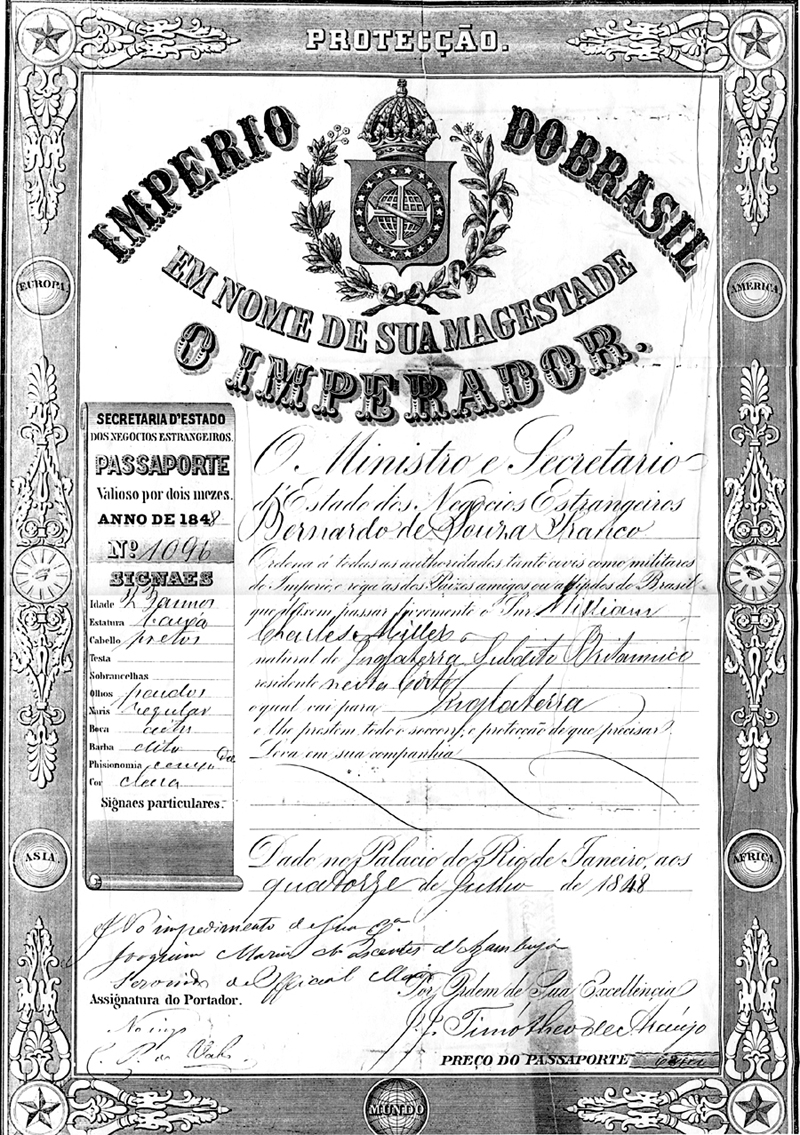 PROTECÇÃO.
IMPERIO DO BRASIL
EM NOME DE SUA MAGESTADE
O IMPERADOR.
EUROPA.
AMERICA.
SECRETARIA D'ESTADO
DOS NEGOCIOS ESTRANGEIROS.
PASSAPORTE
Valioso por dois mezes.
ANNO DE 1848
Nº 1096
SIGNAES
Idade annos
Estatura baixa
Cabello pretos
Testa
Sobrancelhas
Olhos pardos
Naris regular
Boca
Barba dito
Phisionomia
Cor clara
Signaes particulares.
O Ministro e Secretario
d'Estado dos Negocios Estrangeiros
Bernardo de Souza Franco
Ordena á todas as authoridades tanto civis como militares
do Imperio, e roga as dos Paizes amigos ou alliados do Brasil
que deixem passar livremente o Snr. William
Charles Miller
natural de Inglaterra Subdito Britannico
residente nesta Corte
o qual vai para Inglaterra
e lhe prestem todo o soccorro, e protecção de que precisar.
Leva em sua companhia
Dado no Palacio do Rio de Janeiro, aos
quatorze de Julho de 1848
ASIA.
AFRICA.
No impedimento de
Joaquim Maria
Assignatura do Portador.
Por Ordem de Sua Excellencia
J. J. Timotheo de Araujo
PREÇO DO PASSAPORTE
MUNDO